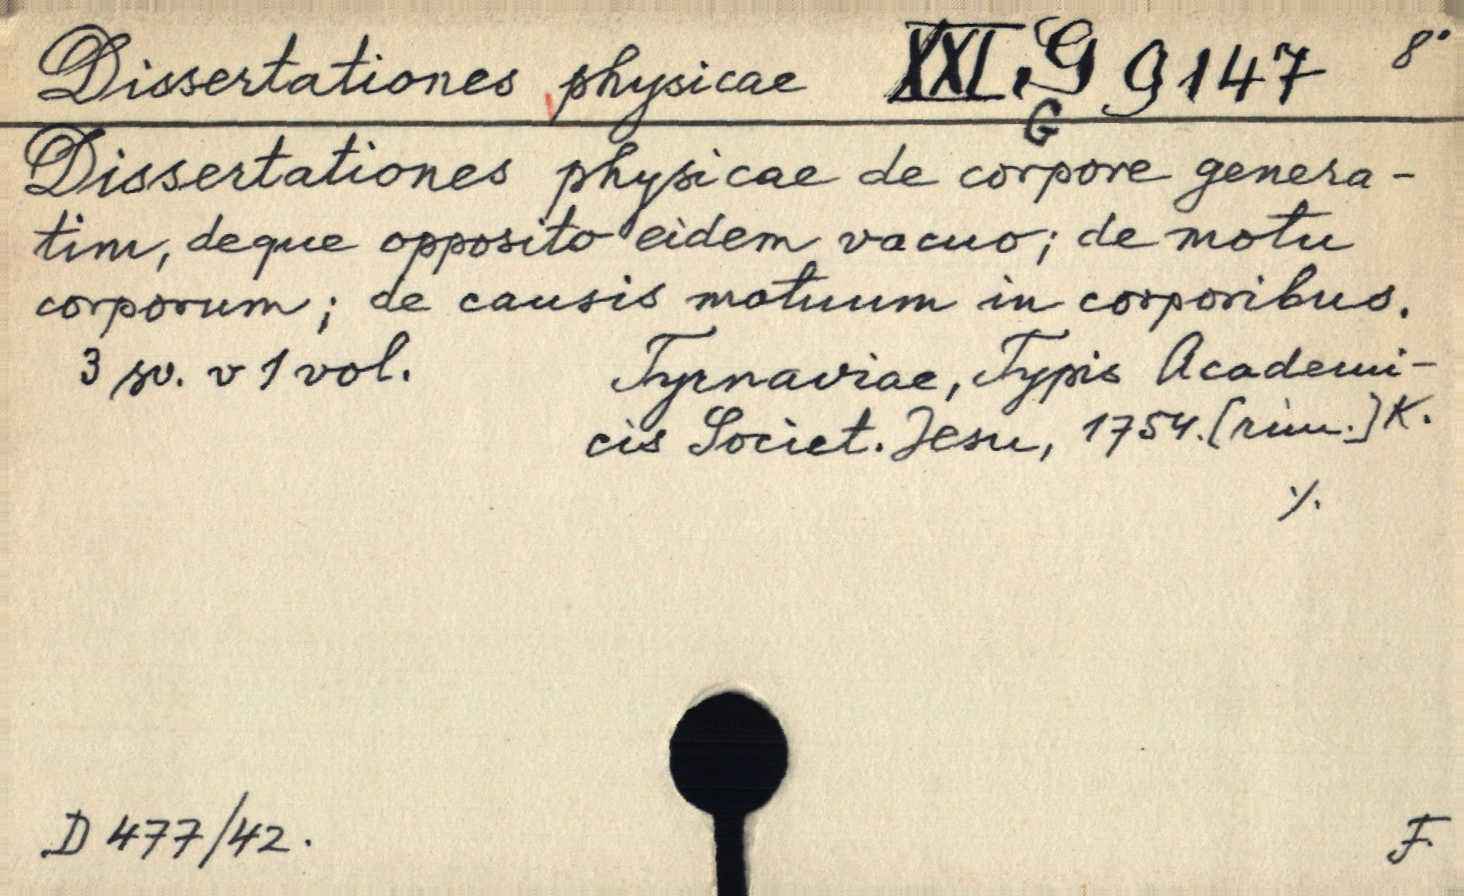 Dissertationes physicae XXI. G 9147 8°
G
Dissertationes physicae de corpore genera-
tim, deque opposito eidem vacuo; de motu
corporum; de causis motuum in corporibus.
3 sv. v 1 vol. Tyrnaviae, Typis Academi-
cis Societ. Jesu, 1754. [rim.] K.
./.
D 477/42. F.